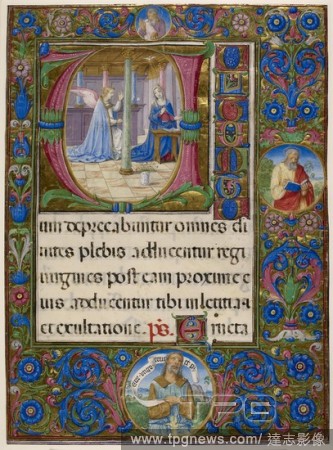 deprecabuntur omnes di
uites plebis adducentur regi
uirgines post eam proxime e
ius adducentur tibi in letitia
et exultatione. ps. Eructa
TPG
www.tpgnews.com/ 達志影像